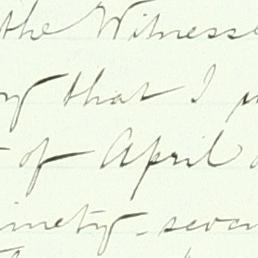 the Witnesse
that I
of April
inety-seven